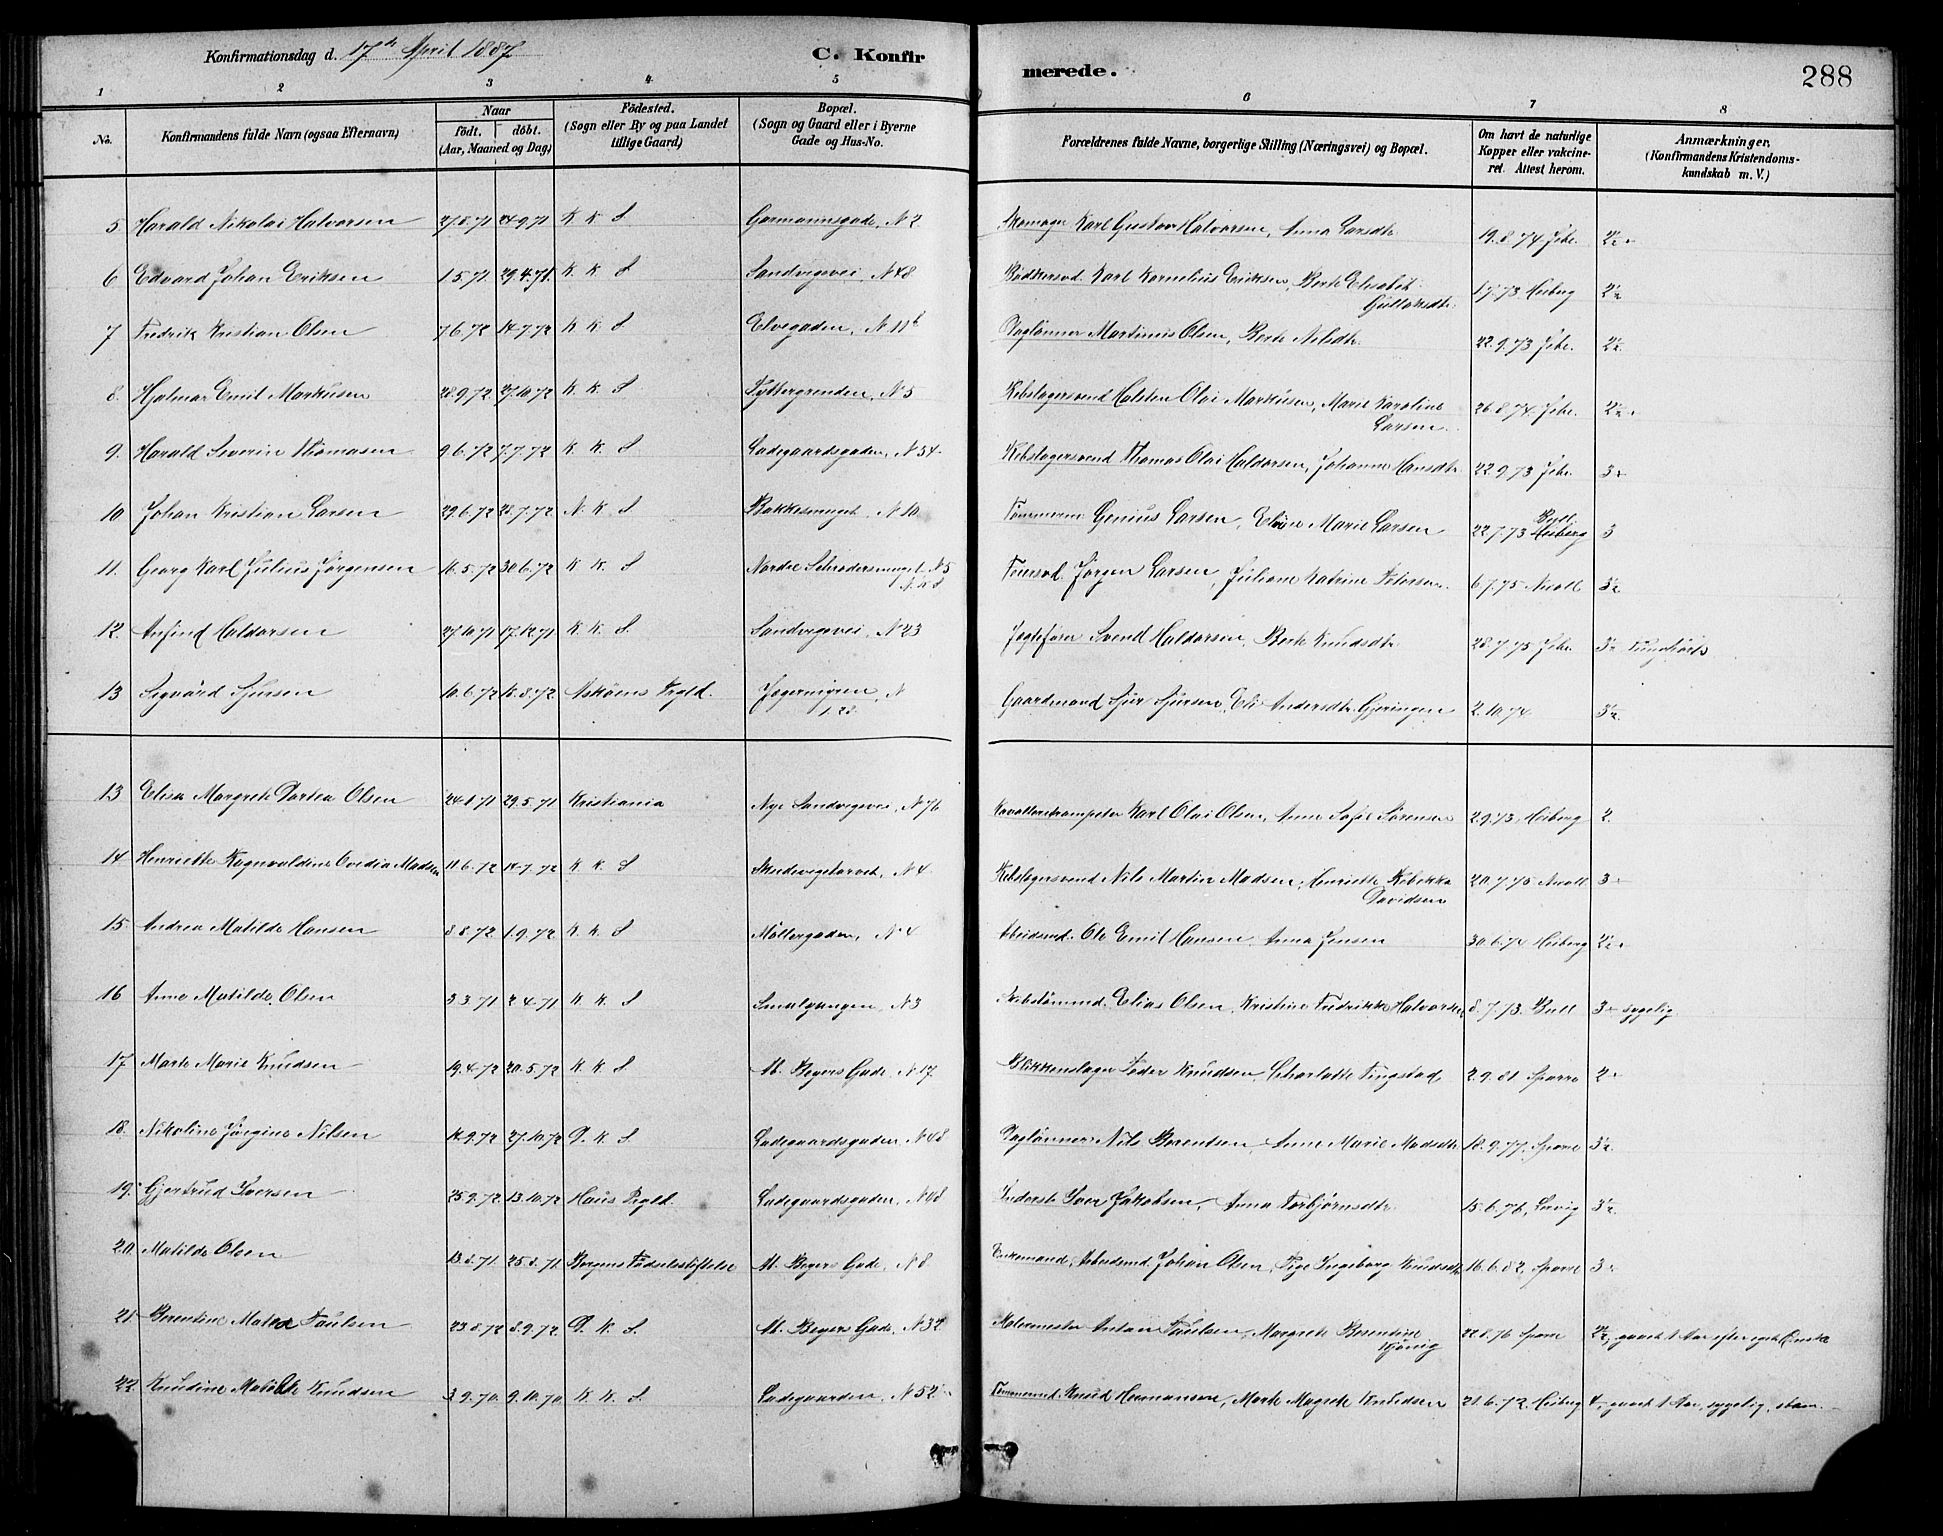 Konfirmationsdag d. 17de April 1887
C. Konfirmerede.
288
1 2 3 4 5 6 7 8
No. Konfirmandens fulde Navn (ogsaa Efternavn) Naar födt. döbt. (Aar, Maaned og Dag) Födested. (Sogn eller By og paa Landet tillige Gaard) Bopæl. (Sogn og Gaard eller i Byerne Gade og Hus-No. Forældrenes fulde Navne, borgerlige Stilling (Næringsvei) og Bopæl. Om havt de naturlige Kopper eller vakcineret. Attest herom. Anmærkninger. (Konfirmandens Kristendomskundskab m. V.)
5 Harald Nikolai Halvorsen 27.8.71 24.9.71 K K S Garmannsgade, N 2 Karl Gustav Halvorsen, Anna Larsdtr. 19.8.74 Jebe.
6 Edvard Johan Eriksen 1.5.71. 29.4.71. K K S Sandvigsvei, N 48 Bödkersvd. Karl Kornelius Eriksen, Berte Elisabet Gulleksdtr. 17.73 Heiberg
7 Fredrik Kristian Olsen 7.6.72 14.7.72 K K S Elvegaden, N 11b Daglønner Martinus Olsen, Berte Nilsdtr. 22.9.73 Jebe.
8. Hjalmar Emil Markusen 28.9.72 27.10.72 K K S N 5 Rebslagersvend Halsten Olai Markusen, Marie Karoline Larsen. 26.8.74. Jebe.
9. Harald Severin Thomasen 9.6.72 7.7.72 K. K. S Ladegaardsgaden, N 54. Rebslagersvend Thomas Olai Haldorsen, Johanne Hansdtr. 22.9.73 Jebe. 3
10 Johan Kristian Larsen 29.6.72 28.7.72 N. K S Bakkesmuget N 10 Genius Larsen, Marie Larsen 22.7.73 Bull Heiberg 3
11. Georg Karl Julius Jørgensen 16.5.72 30.6.72 K K. S Nordre N 5 Jørgen Larsen, Juliane Katrine Petersen. 6.7.75 Nicoll
12. Anfind Haldorsen 27.10.71 17.12.71 K. K. S. Sandvigsvei, N 23 Jagtefører Svend Haldorsen, Berte Knudsdtr. 28.7.75 Jebe. Tunghørt
13 Sigvard Sjursen 10.6.72 18.8.72. Askøens Prgld. N Gaardmand Sjur Sjursen, Eli Andersdtr. 2.10.74
13 Elisa Margrete Dortea Olsen 24.1.71 29.5.71 Kristiania Nye Sandvigsvei, N 76 Karl Olai Olsen, Anne Sofie Sørensen 2.9.73, Heiberg 2.
14 Henriette Ragnvaldine Ovedia Madsen 11.6.72 14.7.72 K K. S Skudevigstorvet, N 4 Rebslagersvend Nils Martin Madsen, Henriette Rebekka Davidsen 20.7.75 Nicoll 3
15. Andrea Matilde Hansen 8.8.72 1.9.72 K. K. S Møllergaden, N 4 Arbeidsmd. Ole Emil Hansen, Anna Jensen 30.6.74 Heiberg
16 Anne Matilde Olsen 3.3.71 2.4.71 K K. S Smalgangen, N 3 Elias Olsen, Kristine Fredrikke Halvorsen 8.7.73. Bull 3 sygelig
17 Marte Marie Knudsen 19.4.72 20.5.72 K K. S A. Beyers Gade, N 17. Blikkenslager Peder Knudsen, Charlotte Tingstad 2.9.81 Sparre 2
18. Nikoline Jørgine Nilsen 12.9.72 27.10.72 D. K. S Ladegaardsgaden N 48 Daglønner Nils Berentsen, Anne Marie Madsdtr. 18.9.77. Sparre
19. Gjertrud Iversen 25.9.72 13.10.72 Haus Prgld. Ladegaardsgaden, N 48 Inderste Iver Jakobsen, Anna Torbjørnsdtr. 15.6.76,
20. Matilde Olsen 13.8.71 25.8.71 Bergens Fødselsstiftelse A. Beyers Gade, N 8 Enkemand, Arbeidsmd. Johan Olsen, Pige Ingeborg Knudsdtr. 16.6.82, Sparre 3
21. Berentine Paulsen 23.8.72 8.9.72 D. K. S. A. Beyers Gade, N 32 Malermester Anton Paulsen, Margrete Berentine 22.8.76 Sparre gaaet 1 Aar efter eget Ønske
22. Knudine Knudsen 3.9.70 9.10.70 K. K. S. Ladegaarden, N 52 Tømmermd. Knud Hermansen, Marte Magrete Knudsen 21.6.72, Heiberg 4 gaaet 1 Aar, sygelig,